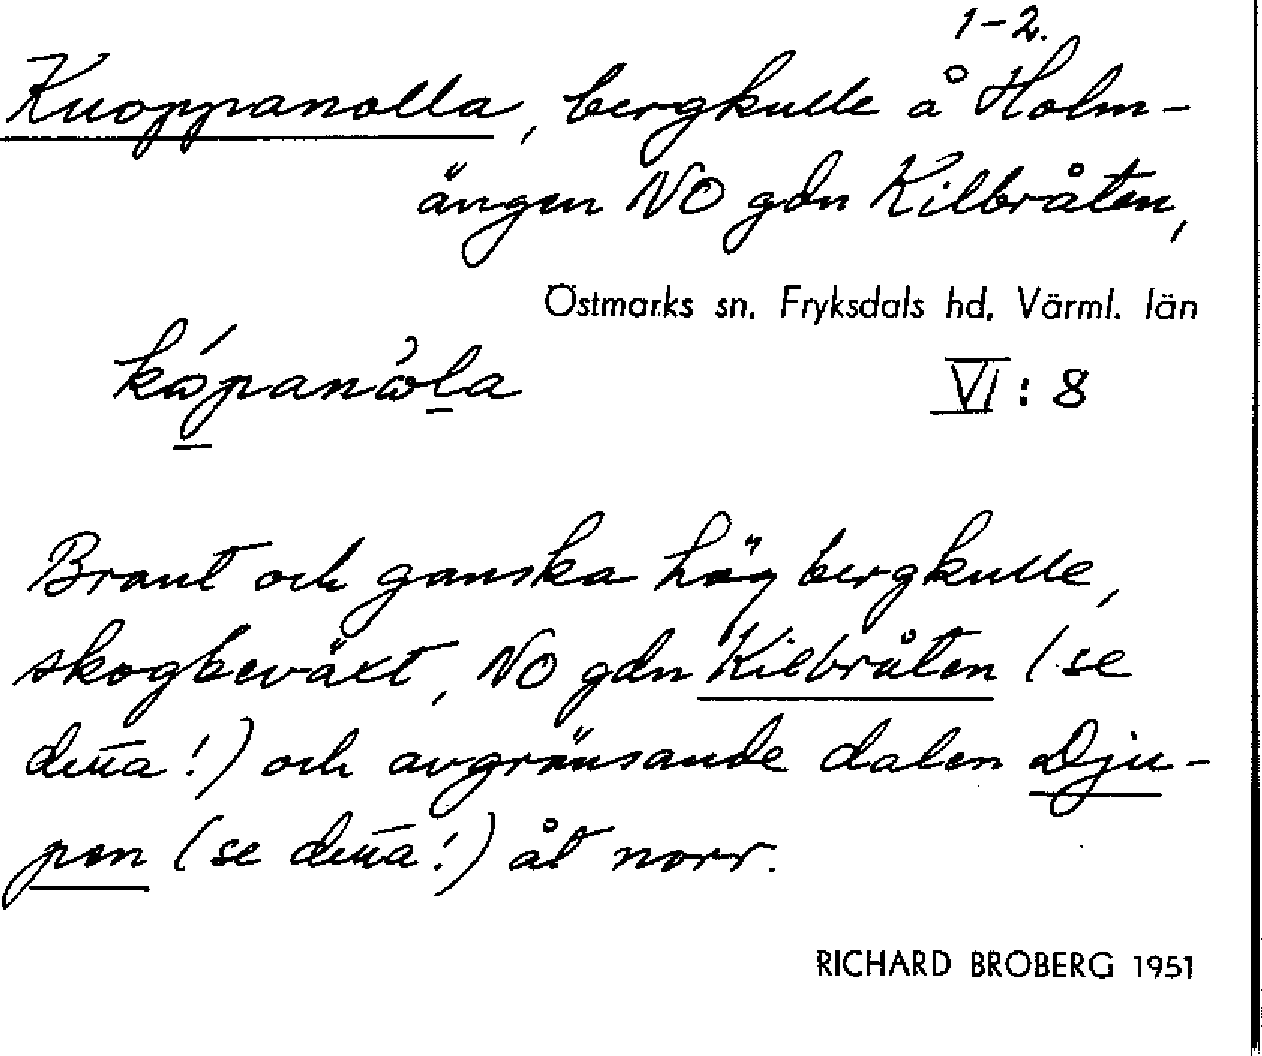 1-2.
Kuoppanolla, bergkulle å Holm-
ängen NO gdn Kilbråten,
Östmarks sn. Fryksdals hd, Värml. län
VI: 8
Brant och ganska hög bergkulle,
skogbeväxt, NO gdn Kilbråten (se
detta!) och avgränsande dalen Dju-
pen (se detta!) åt norr.
RICHARD BROBERG 1951